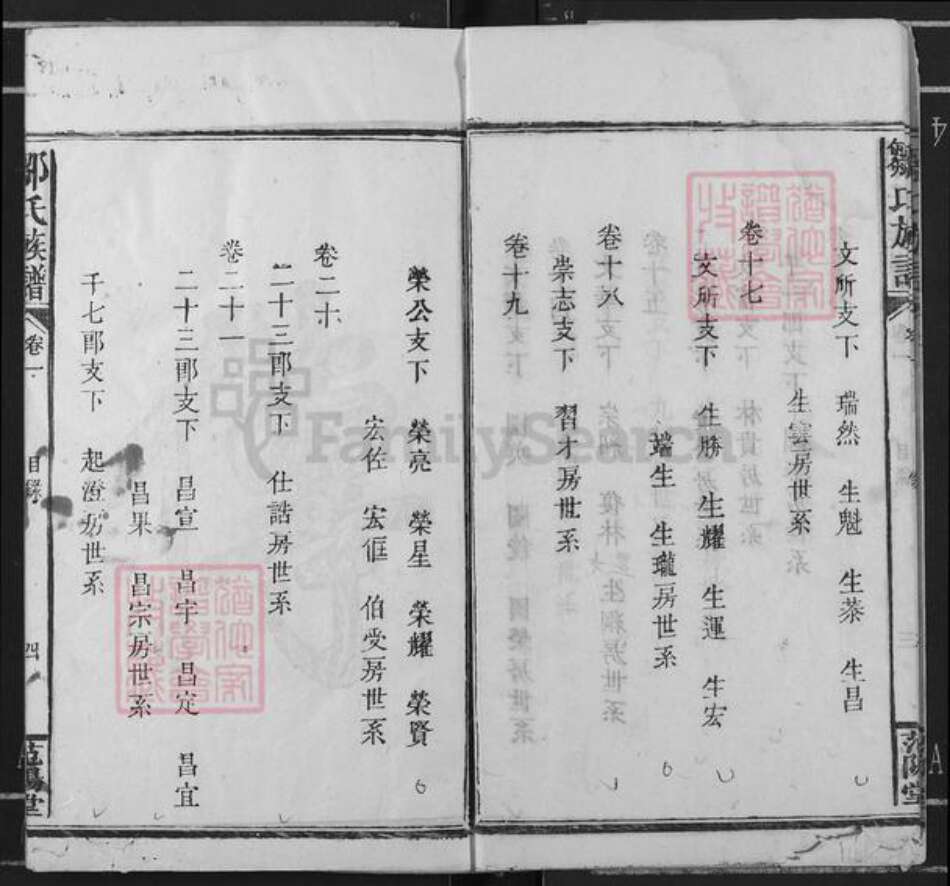 鄒氏族譜
卷一
目錄
三
范陽堂
文所支下 瑞然 生魁 生茶 生昌
生雲房世系
卷十七
文所支下 生勝 生耀 生運 生宏
端生 生瓏房世系
卷十八
崇志支下 習才房世系
卷十九
榮公支下 榮亮 榮星 榮耀 榮賢
宏佐 宏恇 伯受房世系
卷二十
二十三郎支下 仕誥房世系
卷二十一
二十三郎支下 昌宣 昌宇 昌定 昌宜
昌果 昌宗房世系
千七郎支下 起澄房世系
鄒氏族譜
卷一
目錄
四
范陽堂
FamilySearch